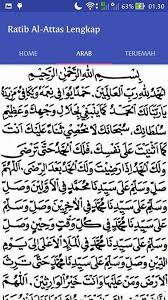 01.30
Ratib Al-Attas Lengkap
HOME ARAB TERJEMAH
بِسْمِ اللهِ الرَّحْمٰنِ الرَّحِيْمِ
اَلْحَمْدُ لِلّٰهِ رَبِّ الْعَالَمِيْنَ حَمْدًا يُوَافِيْ نِعَمَهُ وَيُكَافِئُ مَزِيْدَهُ
يَا رَبَّنَا لَكَ الْحَمْدُ كَمَا يَنْبَغِيْ لِجَلَالِ وَجْهِكَ وَعَظِيْمِ
سُلْطَانِكَ سُبْحَانَكَ لَا نُحْصِيْ ثَنَاءً عَلَيْكَ اَنْتَ
كَمَا اَثْنَيْتَ عَلَى نَفْسِكَ فَلَكَ الْحَمْدُ حَتَّى تَرْضَى
وَلَكَ الْحَمْدُ اِذَا رَضِيْتَ وَلَكَ الْحَمْدُ بَعْدَ الرِّضَى
اَللّٰهُمَّ صَلِّ وَسَلِّمْ عَلَى سَيِّدِنَا مُحَمَّدٍ فِي الْاَوَّلِيْنَ وَصَلِّ
وَسَلِّمْ عَلَى سَيِّدِنَا مُحَمَّدٍ فِي الْاٰخِرِيْنَ وَصَلِّ وَسَلِّمْ
عَلَى سَيِّدِنَا مُحَمَّدٍ فِيْ كُلِّ وَقْتٍ وَحِيْنٍ وَصَلِّ وَسَلِّمْ
عَلَى سَيِّدِنَا مُحَمَّدٍ فِي الْمَلَاِ الْاَعْلَى اِلَى يَوْمِ الدِّيْنِ
وَصَلِّ وَسَلِّمْ عَلَى سَيِّدِنَا مُحَمَّدٍ حَتَّى تَرِثَ الْاَرْضَ
وَمَنْ عَلَيْهَا وَاَنْتَ خَيْرُ الْوَارِثِيْنَ